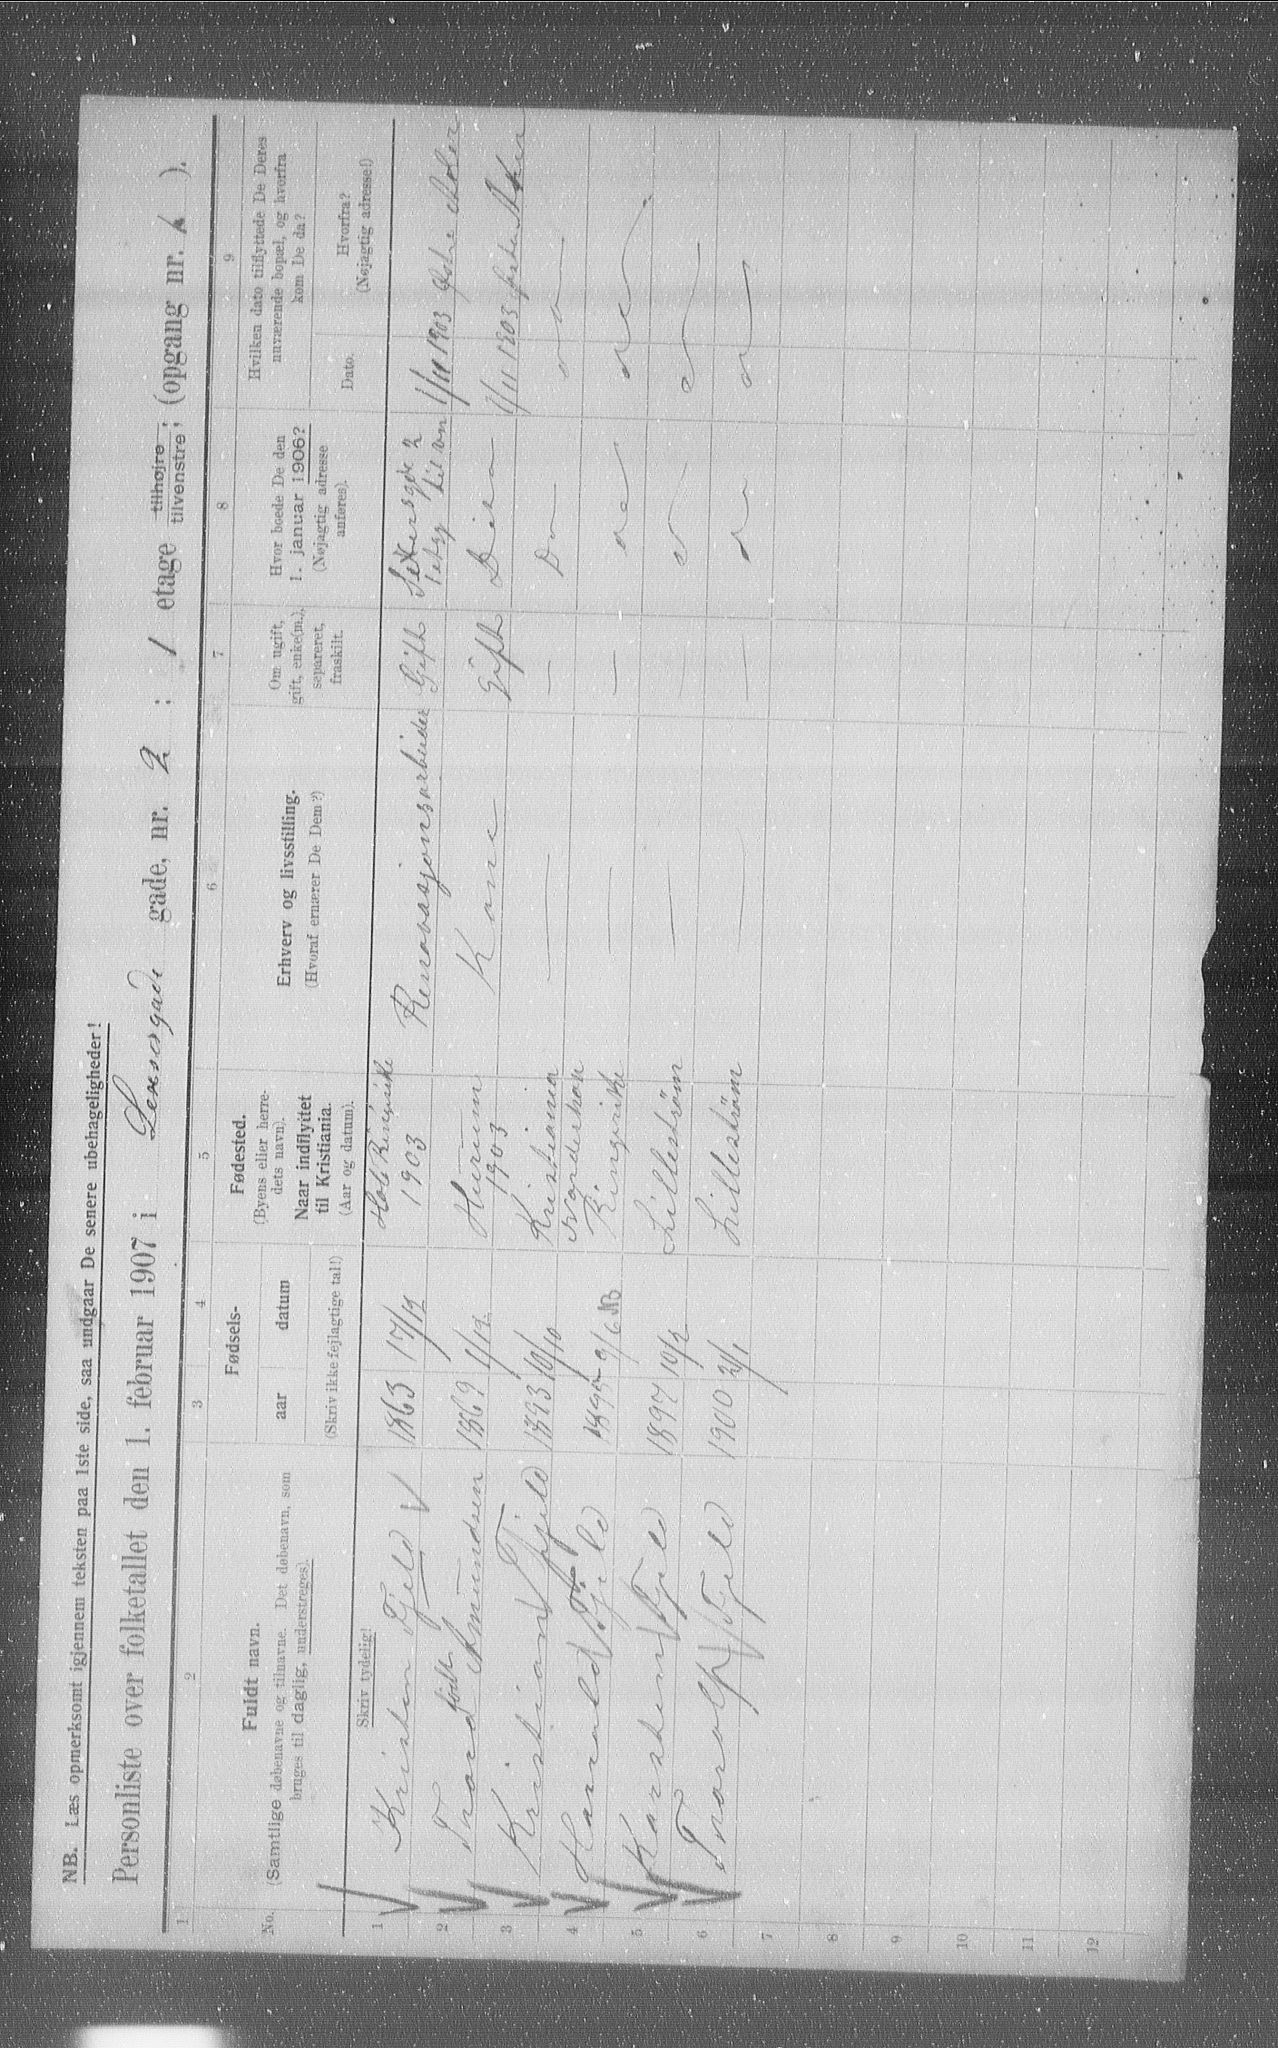 NB. Læs opmerksomt igjennem teksten paa 1ste side, saa undgaar De senere ubehageligheder!
Personliste over folketallet den 1. februar 1907 i gade, nr. 2 ; 1 etage tilhøjre, tilvenstre, (opgang nr. ).
1 2 3 4 5 6 7 8 9
No.
Fuldt navn.
(Samtlige døbenavne og tilnavne. Det døbenavn, som
bruges til daglig, understreges).
Skriv tydelig!
Fødsels-
aar datum
(Skriv ikke fejlagtige tal!)
Fødested.
(Byens eller herre-
dets navn).
Naar indflyttet
til Kristiania.
(Aar og datum).
Erhverv og livsstilling.
(Hvoraf ernærer De Dem?)
Om ugift,
gift, enke(m.),
separeret,
fraskilt.
Hvor boede De den
1. januar 1906?
(Nøjagtig adresse
anføres).
Hvilken dato tilflyttede De Deres
nuværende bopæl, og hvorfra
kom De da?
Dato.
Hvorfra?
(Nøjagtig adresse!)
1 Kristen Fjeld 1863 17/12 Hole Ringerike 1903 Renovasjonsarbeider Gift 2 1/11 1903
2 født Amundsen 1869 1/12 Hurum 1903 Kone Gift Ditto 1/11 1903 Aker
3 Kristian Fjeld 1893 10/10 Kristiania — — Do
4 Harald Fjeld 1895 9/6 Ringerike — — do
5 Karsten Fjeld 1897 10/2 Lillestrøm — —
6 Thoralf Fjeld 1900 2/1 Lillestrøm — —
7
8
9
10
11
12